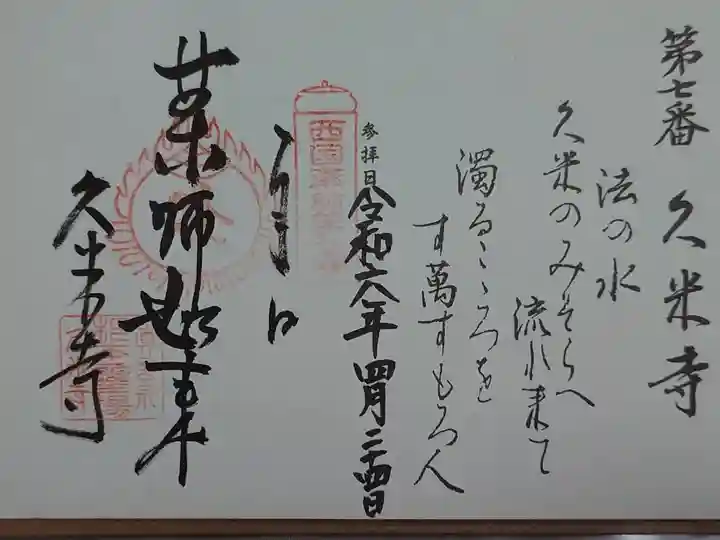 第七番 久米寺
法の水
久米のみそらへ
流れ来て
濁るこころを
す萬すもろ人
参拝日
令和六年四月二十四日
奉拝
薬師如来
久米寺